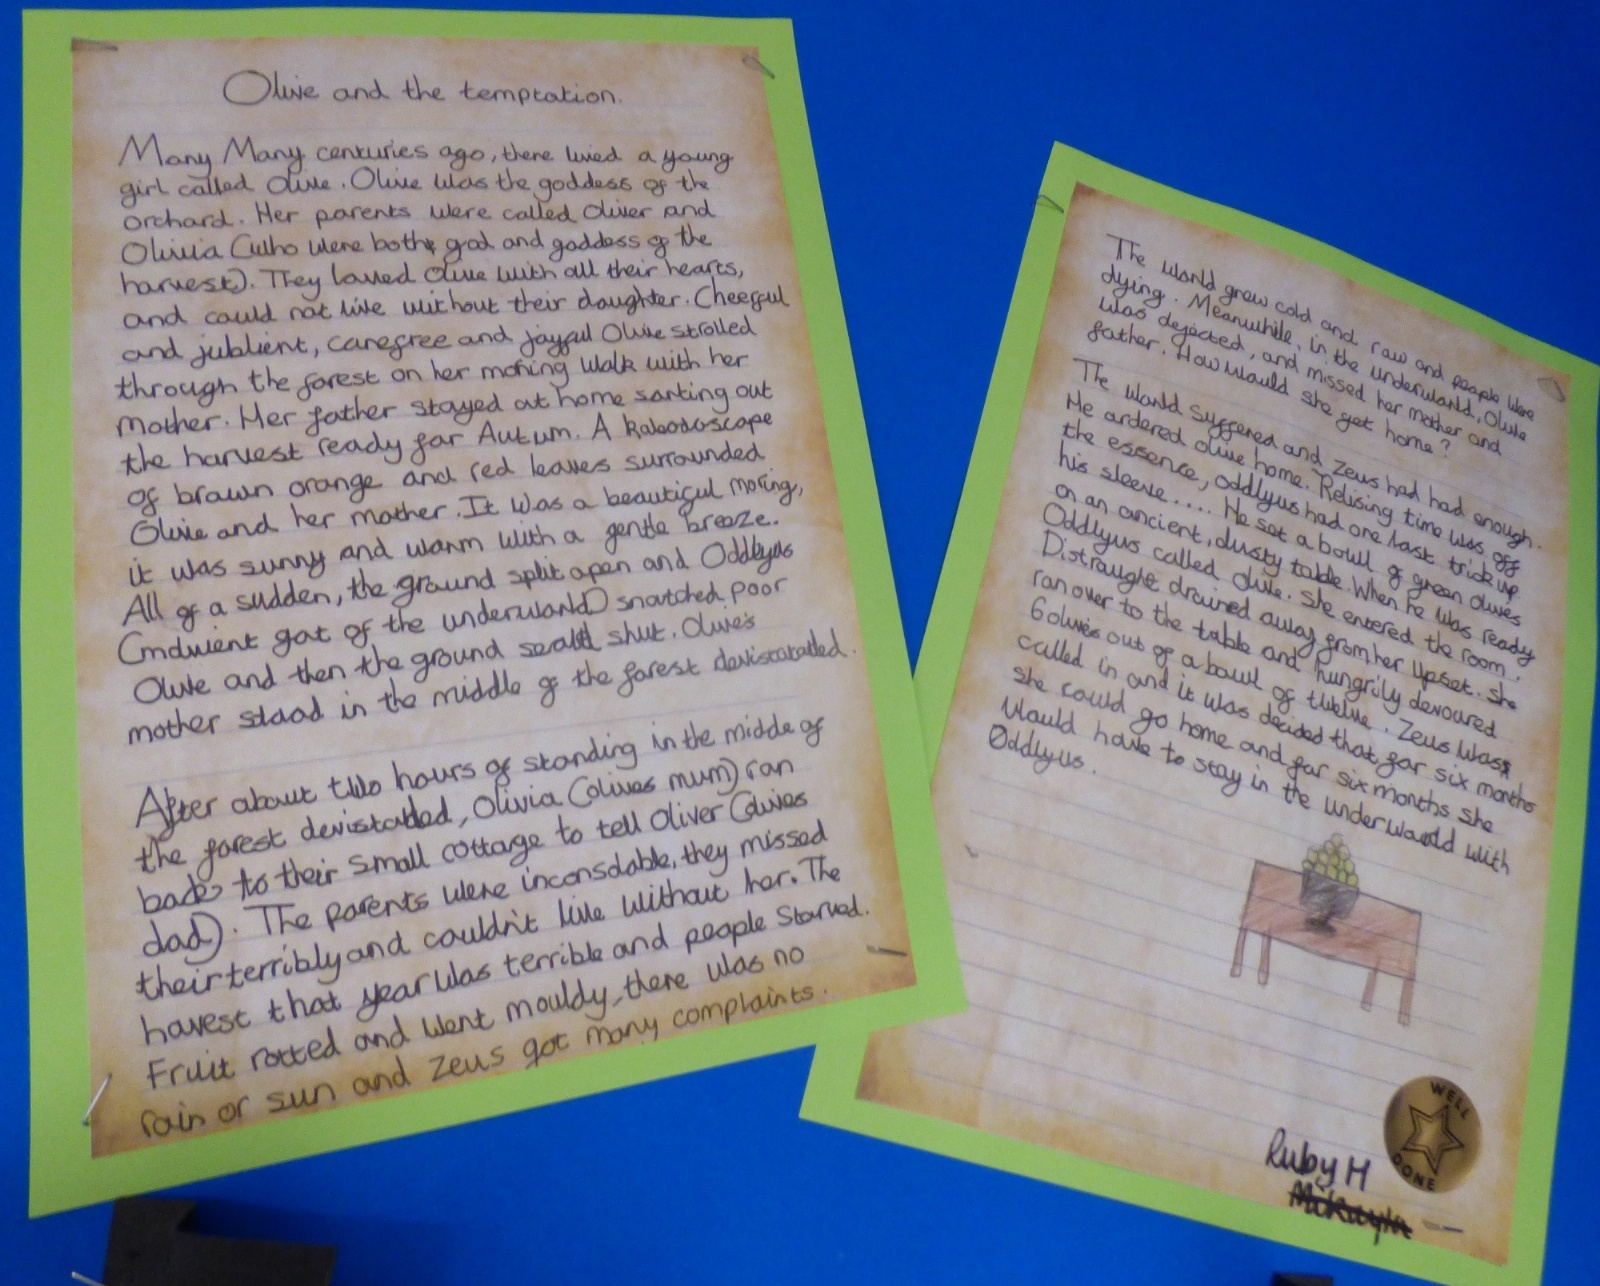 Olive and the temptation.
Many Many centuries ago, there lived a young
girl called Olive. Olive was the goddess of the
orchard. Her parents were called Oliver and
Olivia (who were both god and goddess of the
harvest). They loved Olive with all their hearts,
and could not live without their daughter. Cheerful
and jublient, carefree and joyful Olive strolled
through the forest on her moring walk with her
mother. Her father stayed at home sorting out
the harvest ready for Autum. A kaleodoscope
of brown orange and red leaves surrounded
Olivie and her mother. It was a beautiful moring,
it was sunny and warm with a gentle breeze.
All of a sudden, the ground split open and Oddlyus
(mdwient got of the underworld) snatched poor
Olive and then the ground seald shut. Olive's
mother stood in the middle of the forest devistatalled.
After about two hours of standing in the midde of
the forest devistatled, Olivia (olives mum) ran
back to their small cottage to tell Oliver (olives
dad). The parents were inconsolable, they missed
their terribly and couldn't live without her. The
havest that year was terrible and people starved.
Fruit rotted and went mouldy, there was no
rain or sun and Zeus got many complaints.
The world grew cold and raw and people were
dying. Meanwhile, in the underworld, Olive
was dejected, and missed her mother and
father. How would she get home?
The world suffered and Zeus had had enough.
He ordered olive home. Relising time was off
the essence, oddlyus had one last trick up
his sleeve.... He set a bowl of green olives
on an ancient, dusty table. When he was ready
Oddlyus called olive. She entered the room.
Distraught drained away from her upset. She
ran over to the table and hungrily devoured
6 olives out of a bowl of twelve. Zeus was
called in and it was decided that for six months
she could go home and for six months she
Would have to stay in the underworld with
Oddlyus.
WELL
DONE
Ruby H